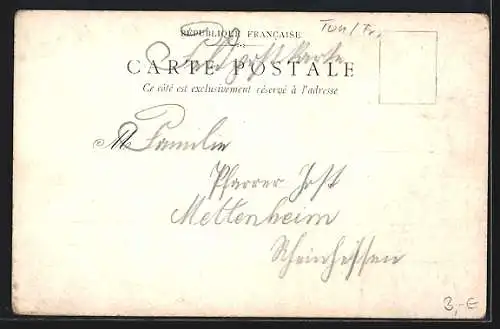 Ton/Fr.
RÉPUBLIQUE FRANÇAISE
Feldpostkarte
CARTE POSTALE
Ce côté est exclusivement réservé à l'adresse
Familie
Pfarrer Jost
Mettenheim
Rheinhessen
3,-€